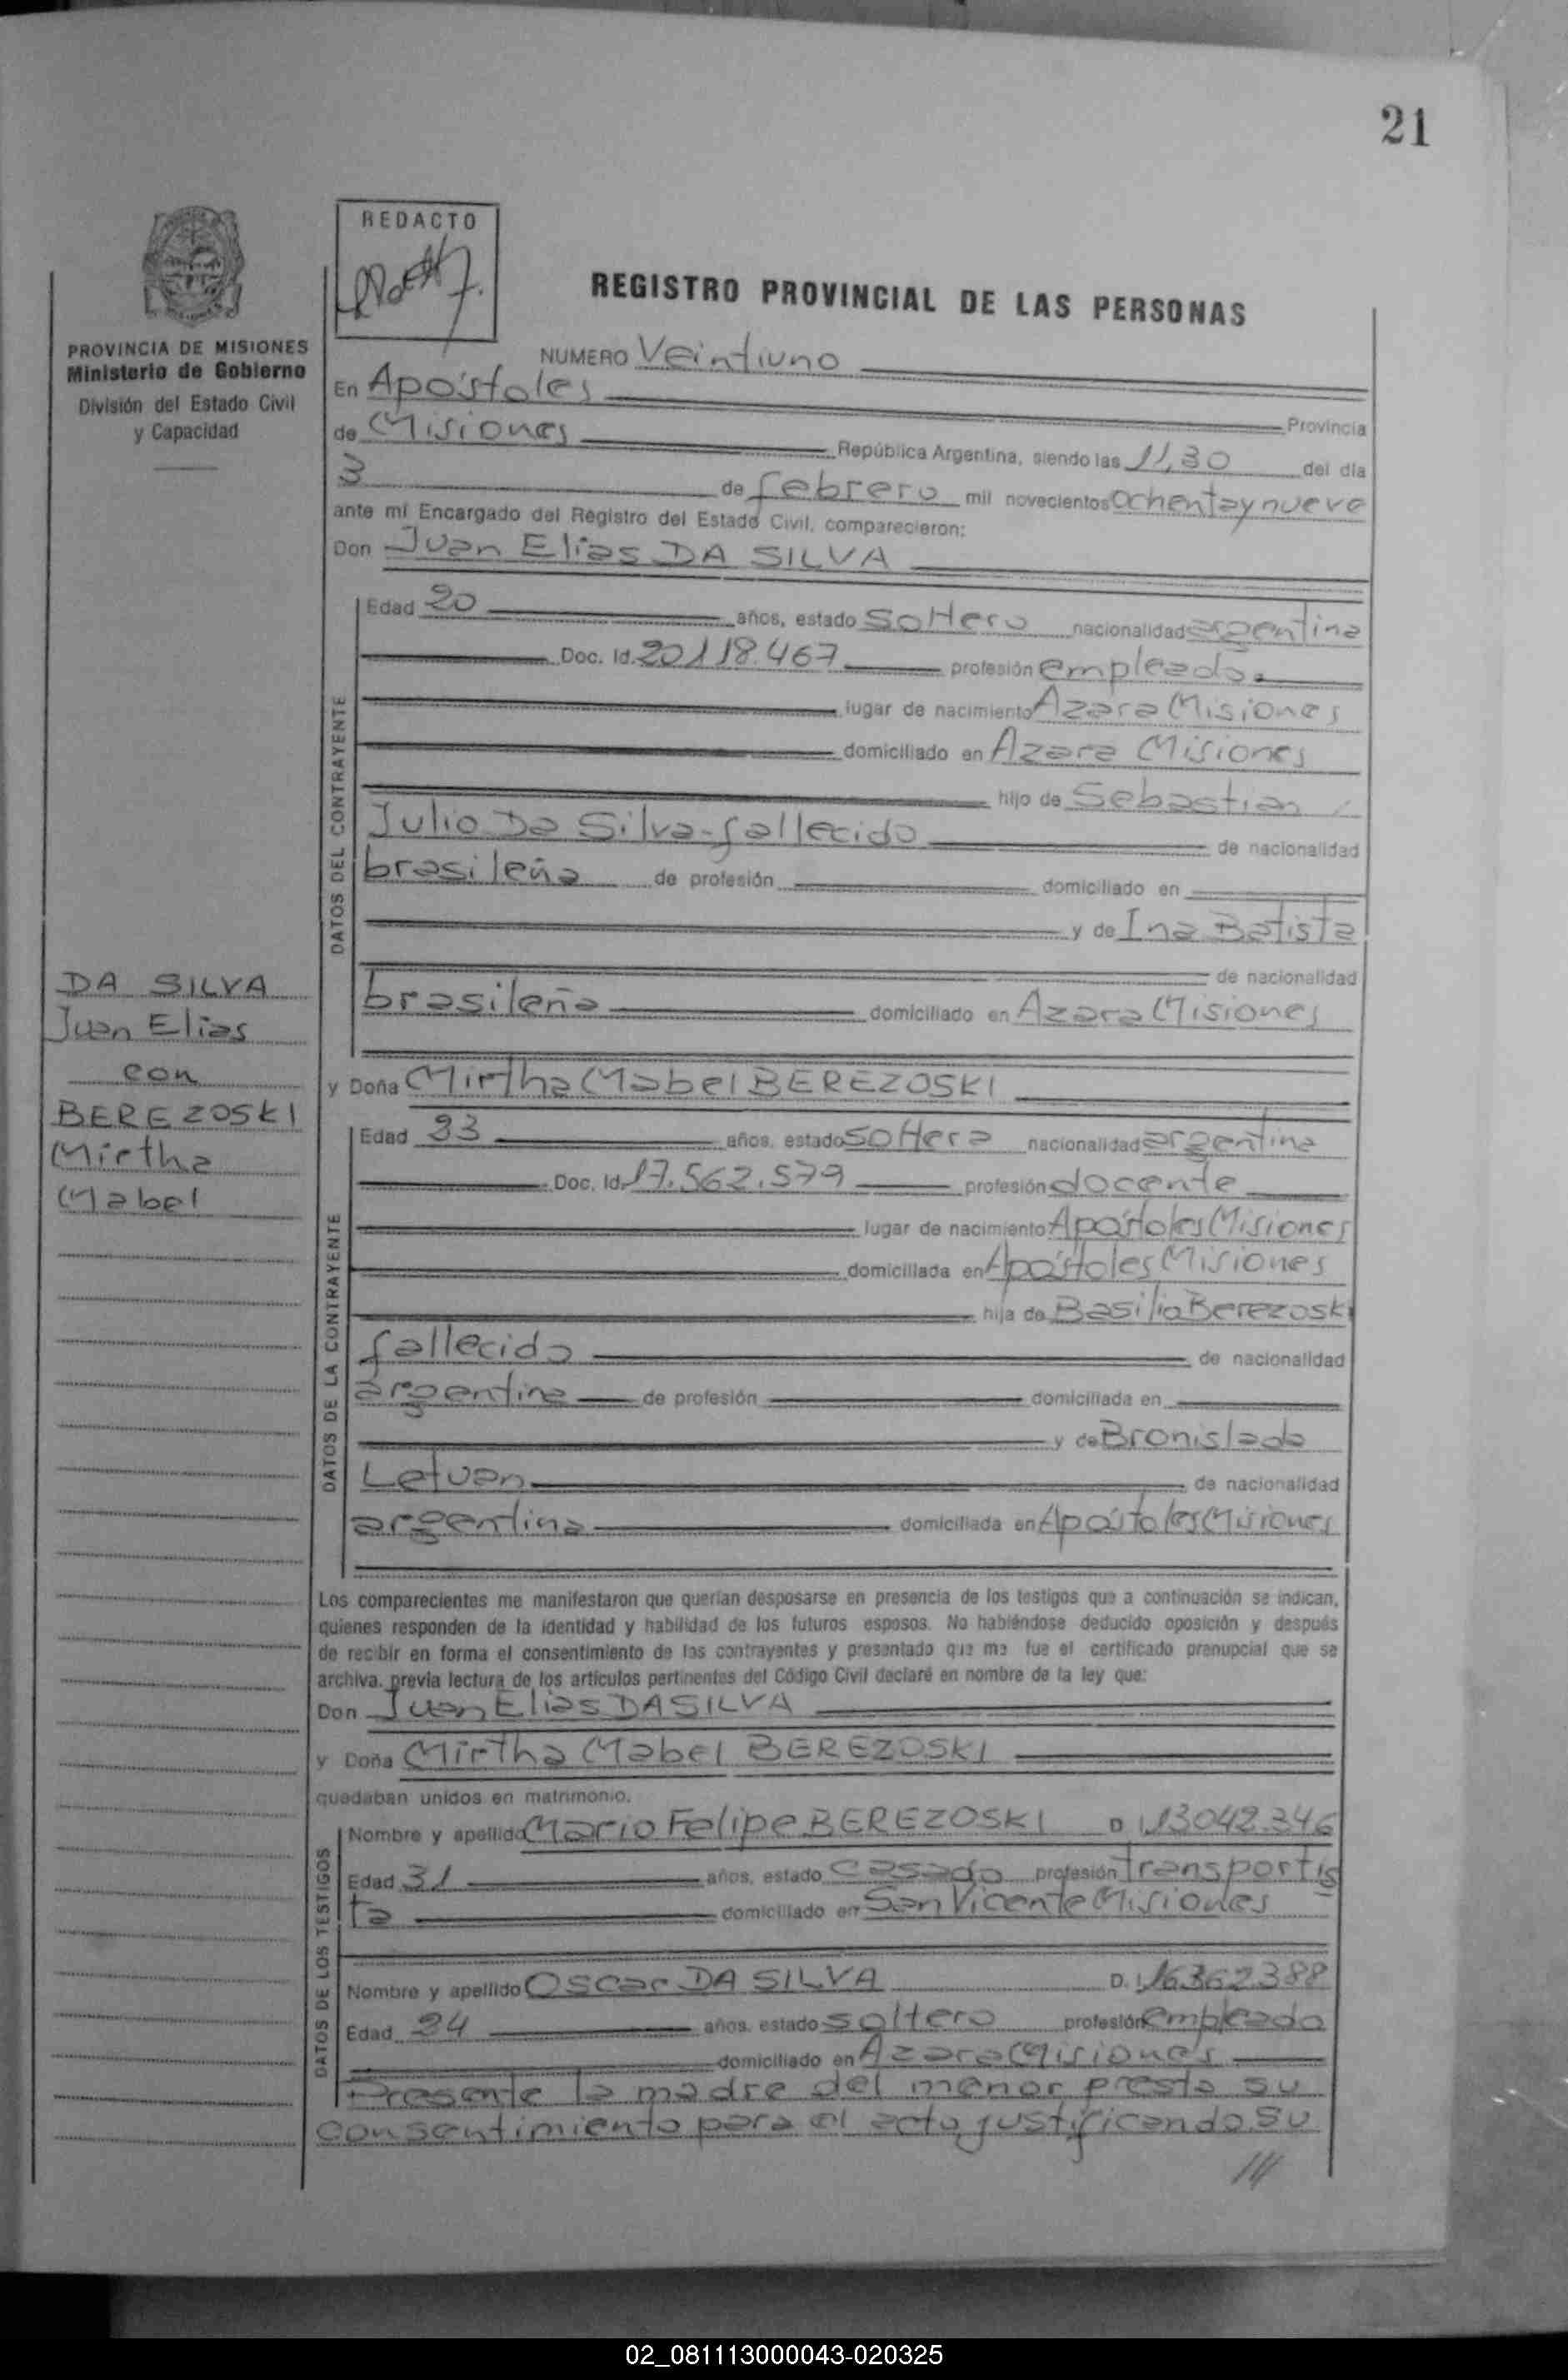 21
REDACTO
REGISTRO PROVINCIAL DE LAS PERSONAS
PROVINCIA DE MISIONES
Ministerio de Gobierno
División del Estado Civil
y Capacidad
NUMERO Veintiuno
En Apóstoles Provincia
de Misiones República Argentina, siendo las 11,30 del día
3 de febrero mil novecientos ochenta y nueve
ante mí Encargado del Registro del Estado Civil, comparecieron:
Don Juan Elias DA SILVA
DATOS DEL CONTRAYENTE
Edad 20 años, estado soltero nacionalidad argentina
Doc. Id. 20118.467 profesión empleado
lugar de nacimiento Azara Misiones
domiciliado en Azara Misiones
hijo de Sebastian
Julio Da Silva-fallecido de nacionalidad
brasileña de profesión domiciliado en
y de Ina Batista
de nacionalidad
brasileña domiciliado en Azara Misiones
DA SILVA
Juan Elias
con
BEREZOSKI
Mirtha
Mabel
y Doña Mirtha Mabel BEREZOSKI
DATOS DE LA CONTRAYENTE
Edad 23 años, estado soltera nacionalidad argentina
Doc. Id. 17.562.579 profesión docente
lugar de nacimiento Apóstoles Misiones
domiciliada en Apóstoles Misiones
hija de Basilio Berezoski
fallecido de nacionalidad
argentina de profesión domiciliada en
y de Bronislada
Letvan de nacionalidad
argentina domiciliada en Apóstoles Misiones
Los comparecientes me manifestaron que querían desposarse en presencia de los testigos que a continuación se indican,
quienes responden de la identidad y habilidad de los futuros esposos. No habiéndose deducido oposición y después
de recibir en forma el consentimiento de los contrayentes y presentado que me fue el certificado prenupcial que se
archiva. previa lectura de los artículos pertinentes del Código Civil declaré en nombre de la ley que:
Don Juan Elias DA SILVA
y Doña Mirtha Mabel BEREZOSKI
quedaban unidos en matrimonio.
DATOS DE LOS TESTIGOS
Nombre y apellido Mario Felipe BEREZOSKI D I 13042.346
Edad 31 años, estado casado profesión transportis
ta domiciliado en San Vicente Misiones
Nombre y apellido Oscar DA SILVA D. I 16362.388
Edad 24 años, estado soltero profesión empleado
domiciliado en Azara Misiones
Presente la madre del menor presta su
consentimiento para el acto, justificando su
///
02_081113000043-020325